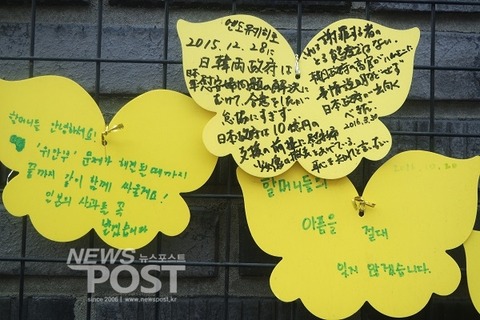 할머니들 안녕하세요!
'위안부' 문제가 해결될 때까지
끝까지 같이 함께 싸울게요!
일본의 사과를 꼭
받겠습니다
엔도유키히로
2015.12.28に
日韓両政府は
軍慰安婦問題の解決に
むけて、合意をしたが
日本政府は10億円の
支援の前提に少女像
謝罪する者の
とる態度ではない。
事情説明などせず
日本政府
할머니들의
아픔을 절대
잊지 않겠습니다.
NEWS 뉴스포스트
POST
since 2006 | www.newspost.kr